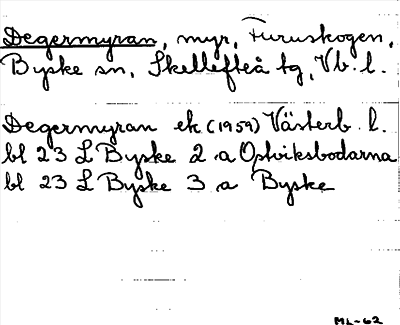 Degermyran, myr, Furuskogen,
Byske sn, Skellefteå tg, Vb. l.
Degermyran ek (1959) Västerb. l.
bl 23 L Byske 2 a Ostviksbodarna
bl 23 L Byske 3 a Byske
ML-62